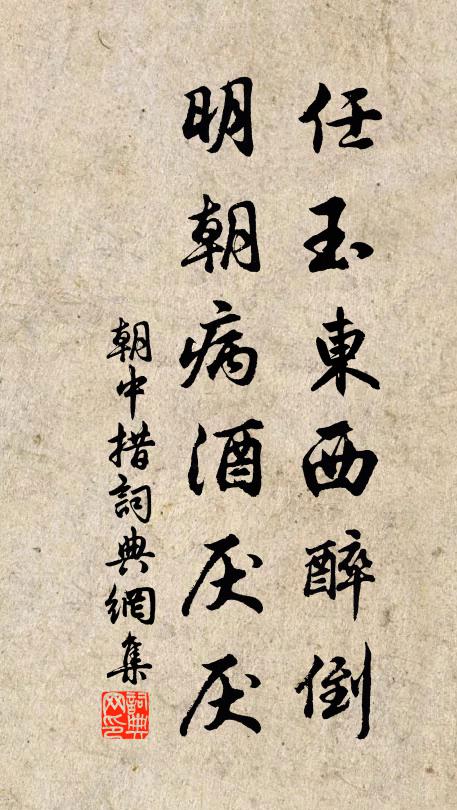 任玉東西醉倒
明朝病酒厌厌
朝中措詞典網集
詞典网印